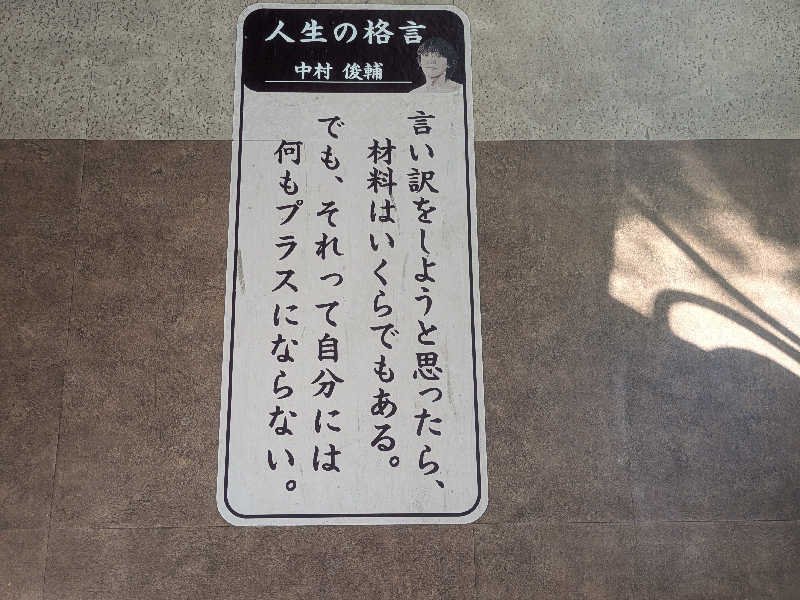 人生の格言
中村 俊輔
言い訳をしようと思ったら、
材料はいくらでもある。
でも、それって自分には
何もプラスにならない。